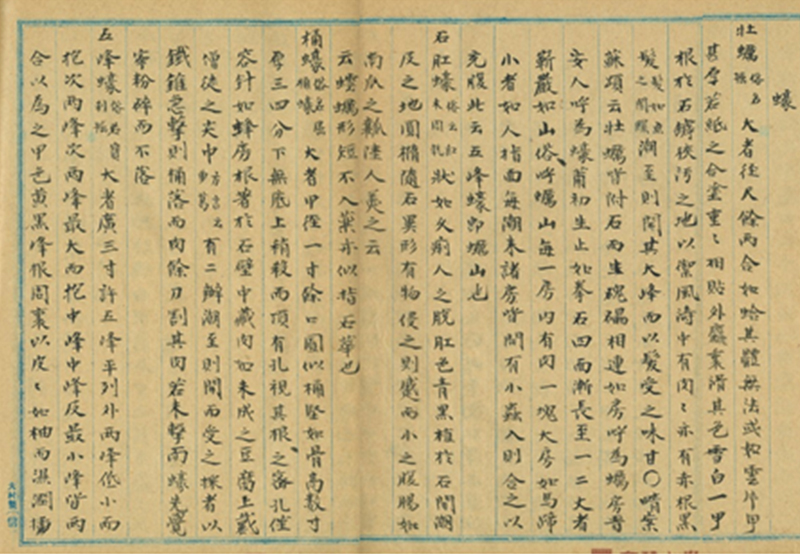 蠔
牡蠣 俗名掘 大者徑尺餘兩合如蛤其體無法或如雲片甲
甚厚若紙之合塗重〻相貼外麤裏滑其色雪白一甲
根於石罅狹汚之地以禦風濤中有肉〻亦有赤根黑
髮 髮如魚之閒鰓 潮至則開其大峰而以髮受之味甘〇晴案
蘇頌云牡蠣皆附石而生磈礧相連如房呼爲蠣房晉
安人呼爲蠔莆初生止如拳石四面漸長至一二丈者
嶄嚴如山俗呼蠣山每一房內有肉一塊大房如馬蹄
小者如人指面每潮來諸房皆開有小蟲入則合之以
充腹此云五峰蠔卽蠣山也
石肛蠔 俗名紅未周朝 狀如久痢人之脫肛色青黑植於石間潮
及之地圓橢隨石異形有物侵之則蹙而小之腹腸如
南瓜之瓤陸人羹之云
云螺蠣形短不入藥亦似指石華也
桶蠔 俗名屈桶蠔 大者甲徑一寸餘口圓似桶堅如骨高數寸
厚三四分下無底上稍殺而頂有孔視其根之密孔僅
容針如蜂房根著於石壁中藏肉如未成之豆腐上戴
僧徒之尖巾 方言云 有二瓣潮至則開而受之採者以
鐵錐急擊則桶落而肉餘刀割其肉若未擊而蠔先覺
寧粉碎而不落
五峰蠔 俗名寶刹掘 大者廣三寸許五峰平列外兩峰低小而
抱次兩峰次兩峰最大而抱中峰中峰反最小峰皆兩
合以爲之甲色黃黑峰根周裹以皮〻如柚而濕潤揷